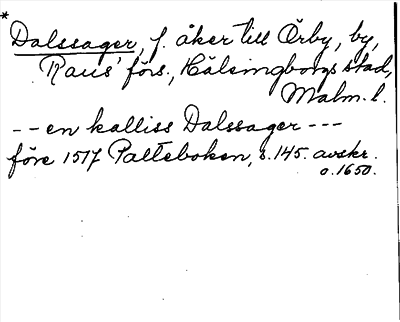 *
Dalssager, f. åker till Örby, by,
Raus' förs., Hälsingborgs stad,
Malm. l.
-- en kalliss Dalssager ---
före 1517 Palteboken, s. 145. avskr.
o. 1650.